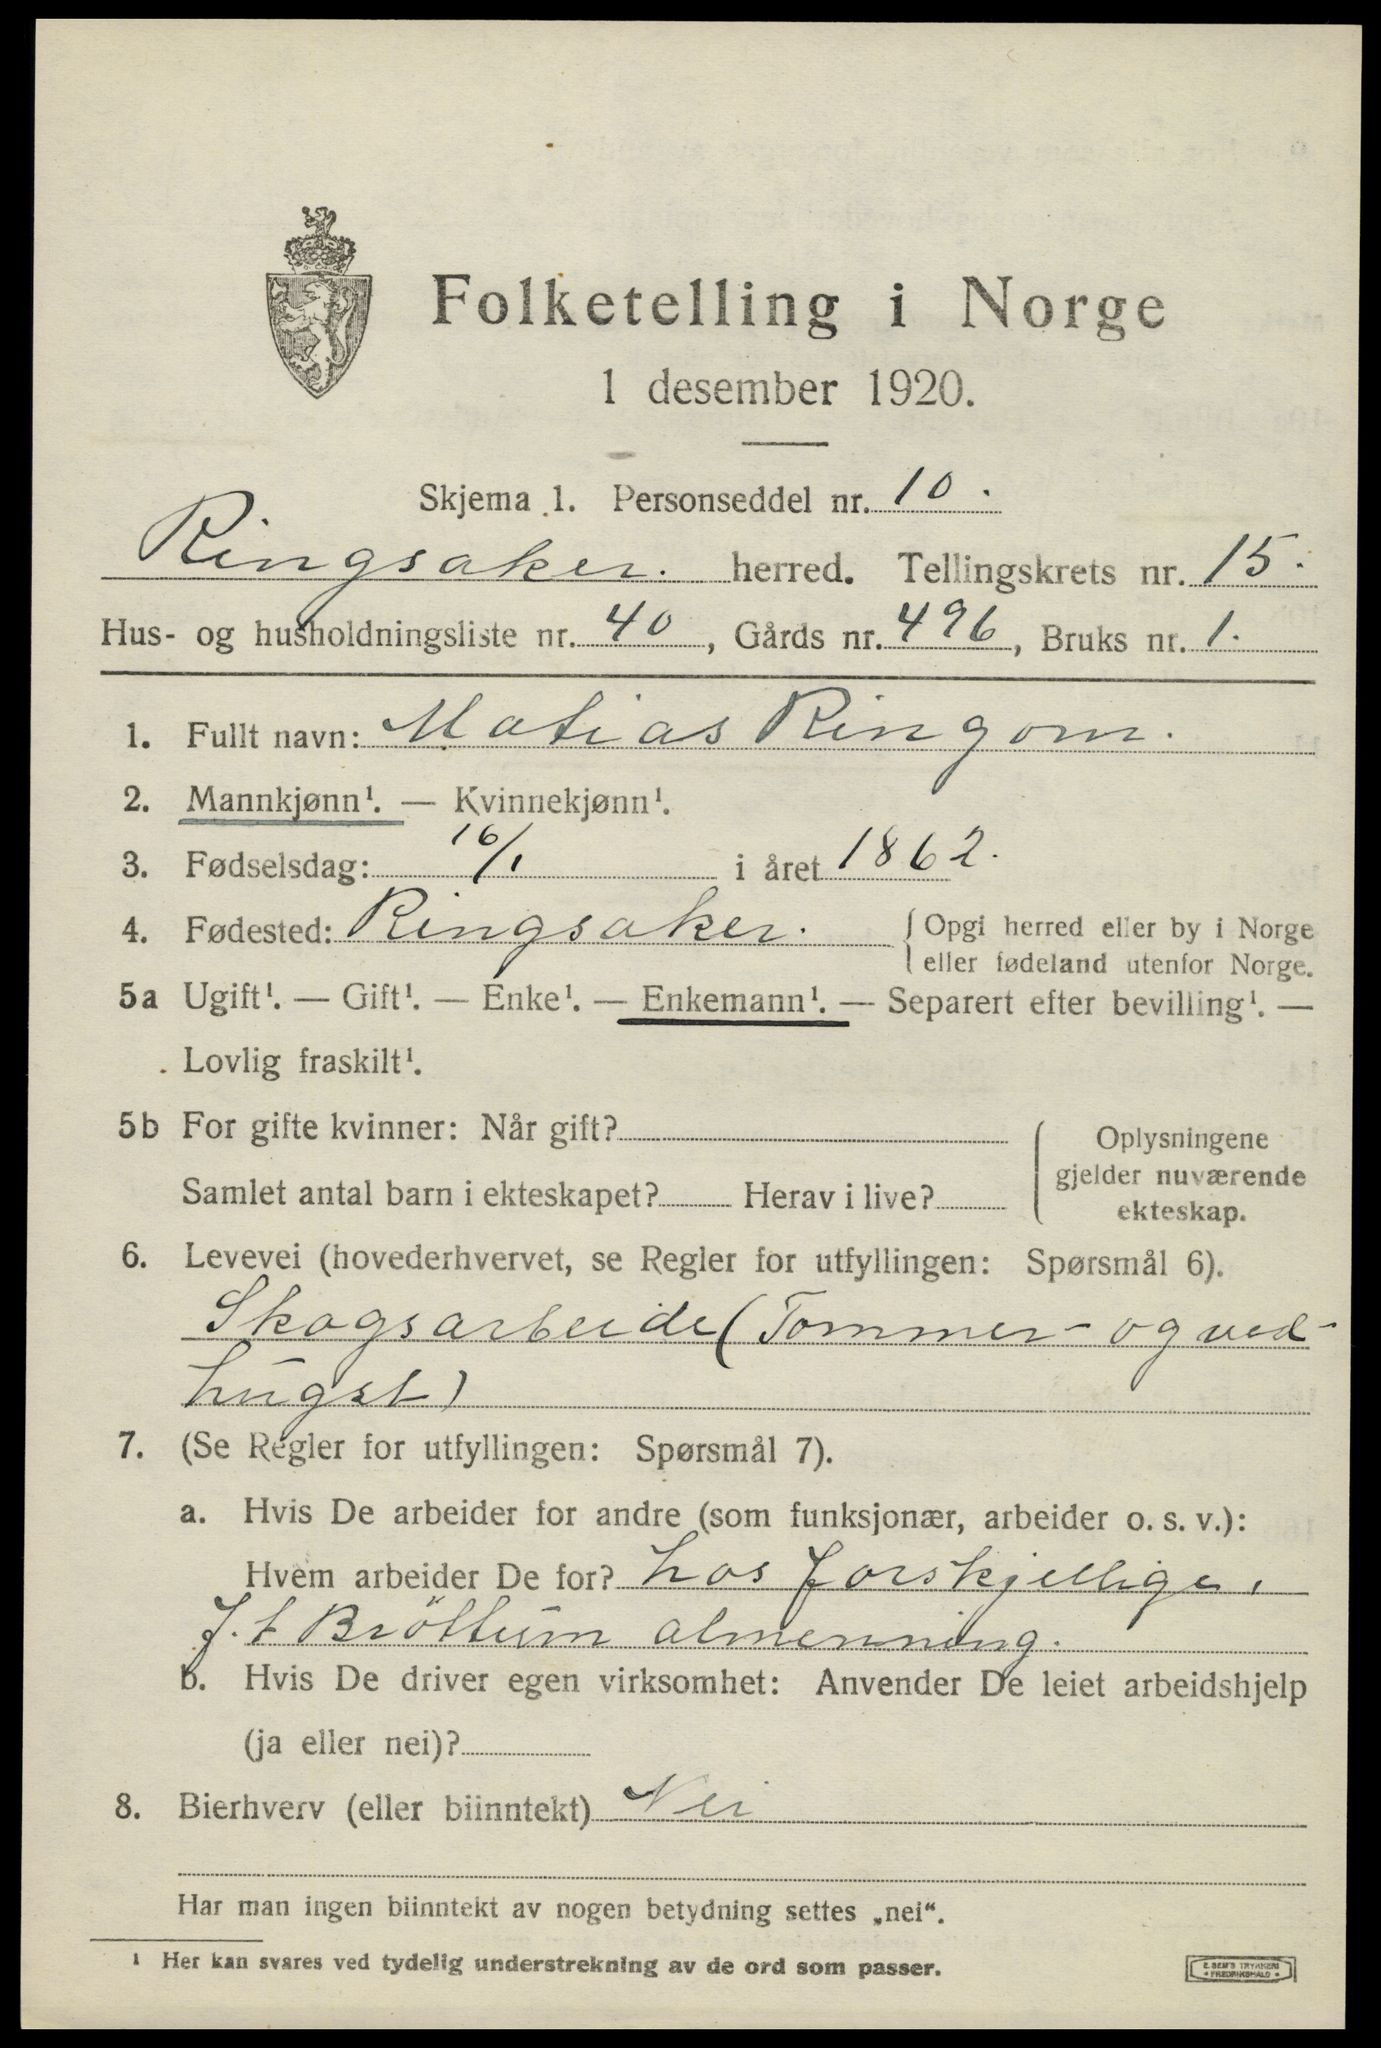 Folketelling i Norge
1 desember 1920.
Skjema 1. Personseddel nr. 10.
Ringsaker. herred. Tellingskrets nr. 15.
Hus- og husholdningsliste nr. 40, Gårds nr. 496, Bruks nr. 1.
1. Fullt navn: Matias Ringom.
2. Mannkjønn¹. — Kvinnekjønn¹.
3. Fødselsdag: 16/1 i året 1862.
4. Fødested: Ringsaker. { Opgi herred eller by i Norge
eller fødeland utenfor Norge.
5a Ugift¹. — Gift¹. — Enke¹. — Enkemann¹. — Separert efter bevilling¹. —
Lovlig fraskilt¹.
5b For gifte kvinner: Når gift?
Samlet antal barn i ekteskapet? Herav i live?
Oplysningene
gjelder nuværende
ekteskap.
6. Levevei (hovederhvervet, se Regler for utfyllingen: Spørsmål 6).
Skogsarbeide (Tommer- og ved-
hugst)
7. (Se Regler for utfyllingen: Spørsmål 7).
a. Hvis De arbeider for andre (som funksjonær, arbeider o. s. v.):
Hvem arbeider De for? hos forskjellige,
f. t Bröttum almenning.
b. Hvis De driver egen virksomhet: Anvender De leiet arbeidshjelp
(ja eller nei)?
8. Bierhverv (eller biinntekt) Nei
Har man ingen biinntekt av nogen betydning settes „nei“.
¹ Her kan svares ved tydelig understrekning av de ord som passer.
E. SEM'S TRYKKERI
• FREDRIKSHALD •